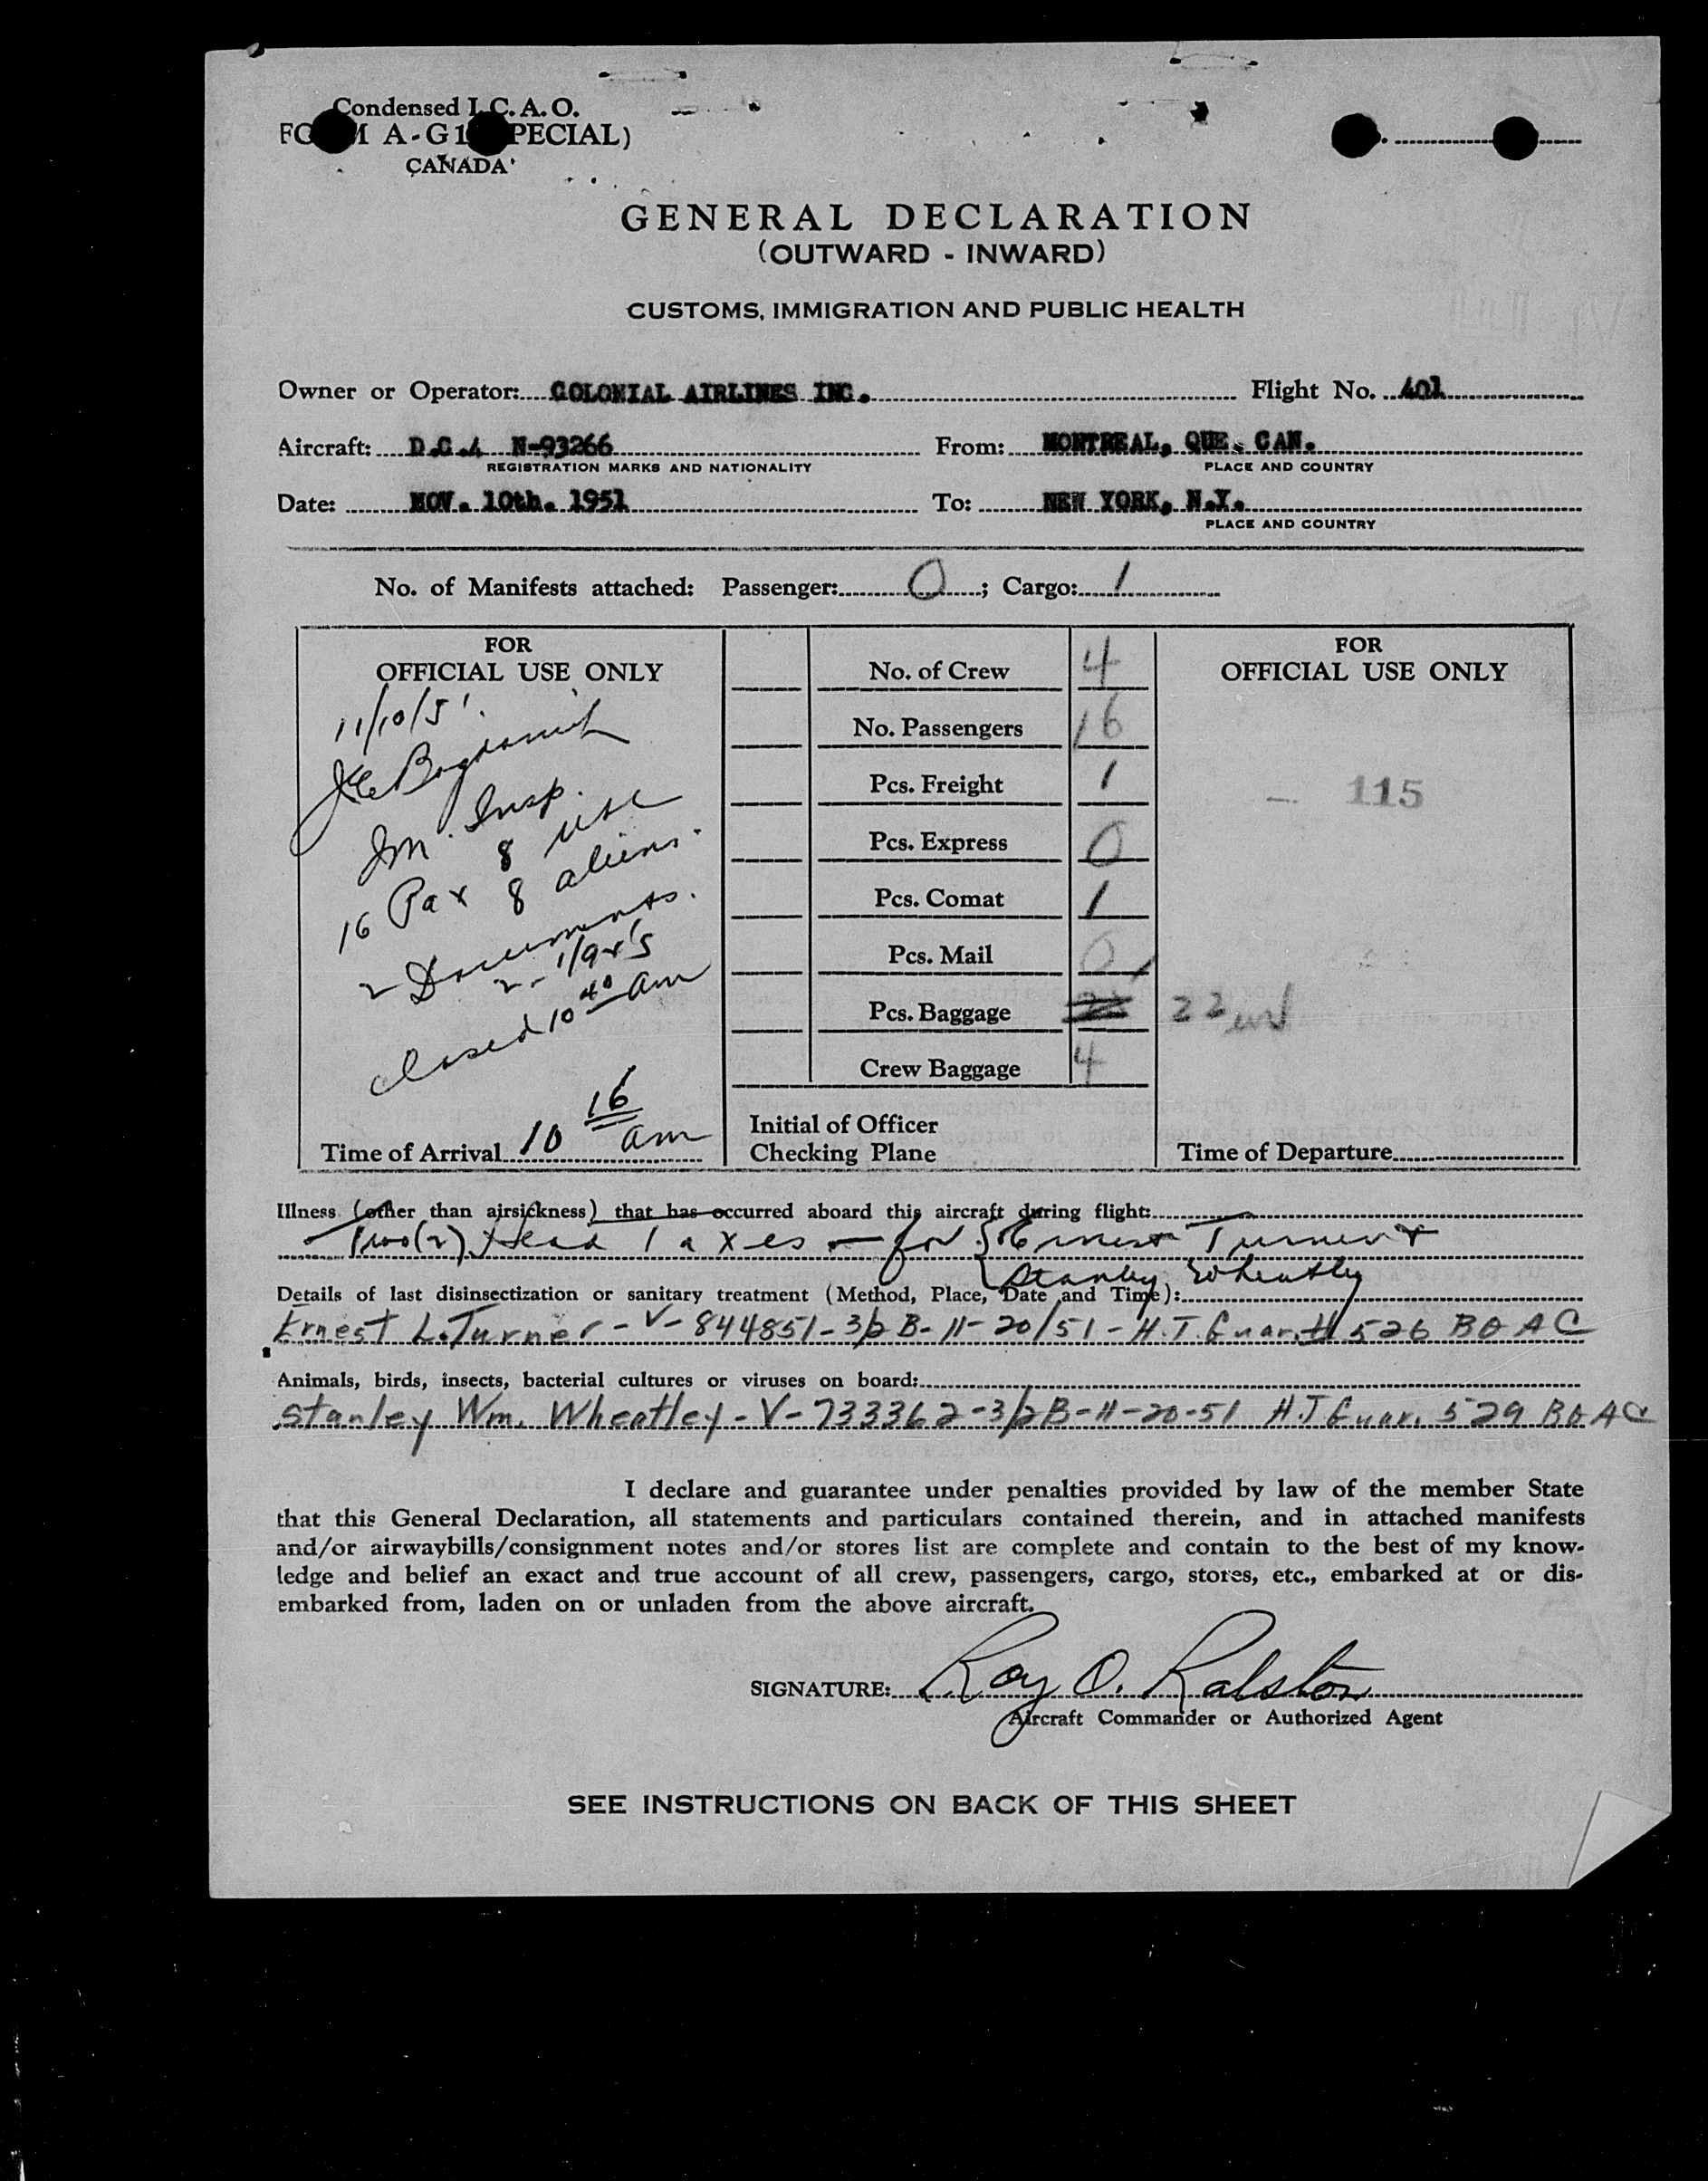 Condensed I.C.A.O.
FORM A-G1 (SPECIAL)
CANADA
GENERAL DECLARATION
(OUTWARD - INWARD)
CUSTOMS, IMMIGRATION AND PUBLIC HEALTH
Owner or Operator: COLONIAL AIRLINES INC. Flight No. 401
Aircraft: D.C.4 N-93266 From: MONTREAL, QUE. CAN.
REGISTRATION MARKS AND NATIONALITY PLACE AND COUNTRY
Date: NOV. 10th. 1951 To: NEW YORK, N.Y.
PLACE AND COUNTRY
No. of Manifests attached: Passenger: 0; Cargo: 1
FOR
OFFICIAL USE ONLY
11/10/51.
Im. Insp.
8 USC
16 Pax 8 aliens.
2 Documents.
closed 10 40 am
Time of Arrival 10 16 am
No. of Crew 4
No. Passengers 16
Pcs. Freight 1
Pcs. Express 0
Pcs. Comat 1
Pcs. Mail 0
Pcs. Baggage 22
Crew Baggage 4
Initial of Officer
Checking Plane
FOR
OFFICIAL USE ONLY
- 115
Time of Departure
Illness (other than airsickness) that has occurred aboard this aircraft during flight:
Two (2) Head Taxes - for Ernest Turner &
Stanley Wheatley
Details of last disinsectization or sanitary treatment (Method, Place, Date and Time):
Ernest L. Turner - V- 844851 - 3/2 B- 11-20/51 - H.T. Guar. # 526 BOAC
Animals, birds, insects, bacterial cultures or viruses on board:
Stanley Wm. Wheatley - V- 733362 - 3/2B - 11-20-51 H.T Guar. 529 BOAC
I declare and guarantee under penalties provided by law of the member State
that this General Declaration, all statements and particulars contained therein, and in attached manifests
and/or airwaybills/consignment notes and/or stores list are complete and contain to the best of my know-
ledge and belief an exact and true account of all crew, passengers, cargo, stores, etc., embarked at or dis-
embarked from, laden on or unladen from the above aircraft.
SIGNATURE: Roy O. Ralston
Aircraft Commander or Authorized Agent
SEE INSTRUCTIONS ON BACK OF THIS SHEET